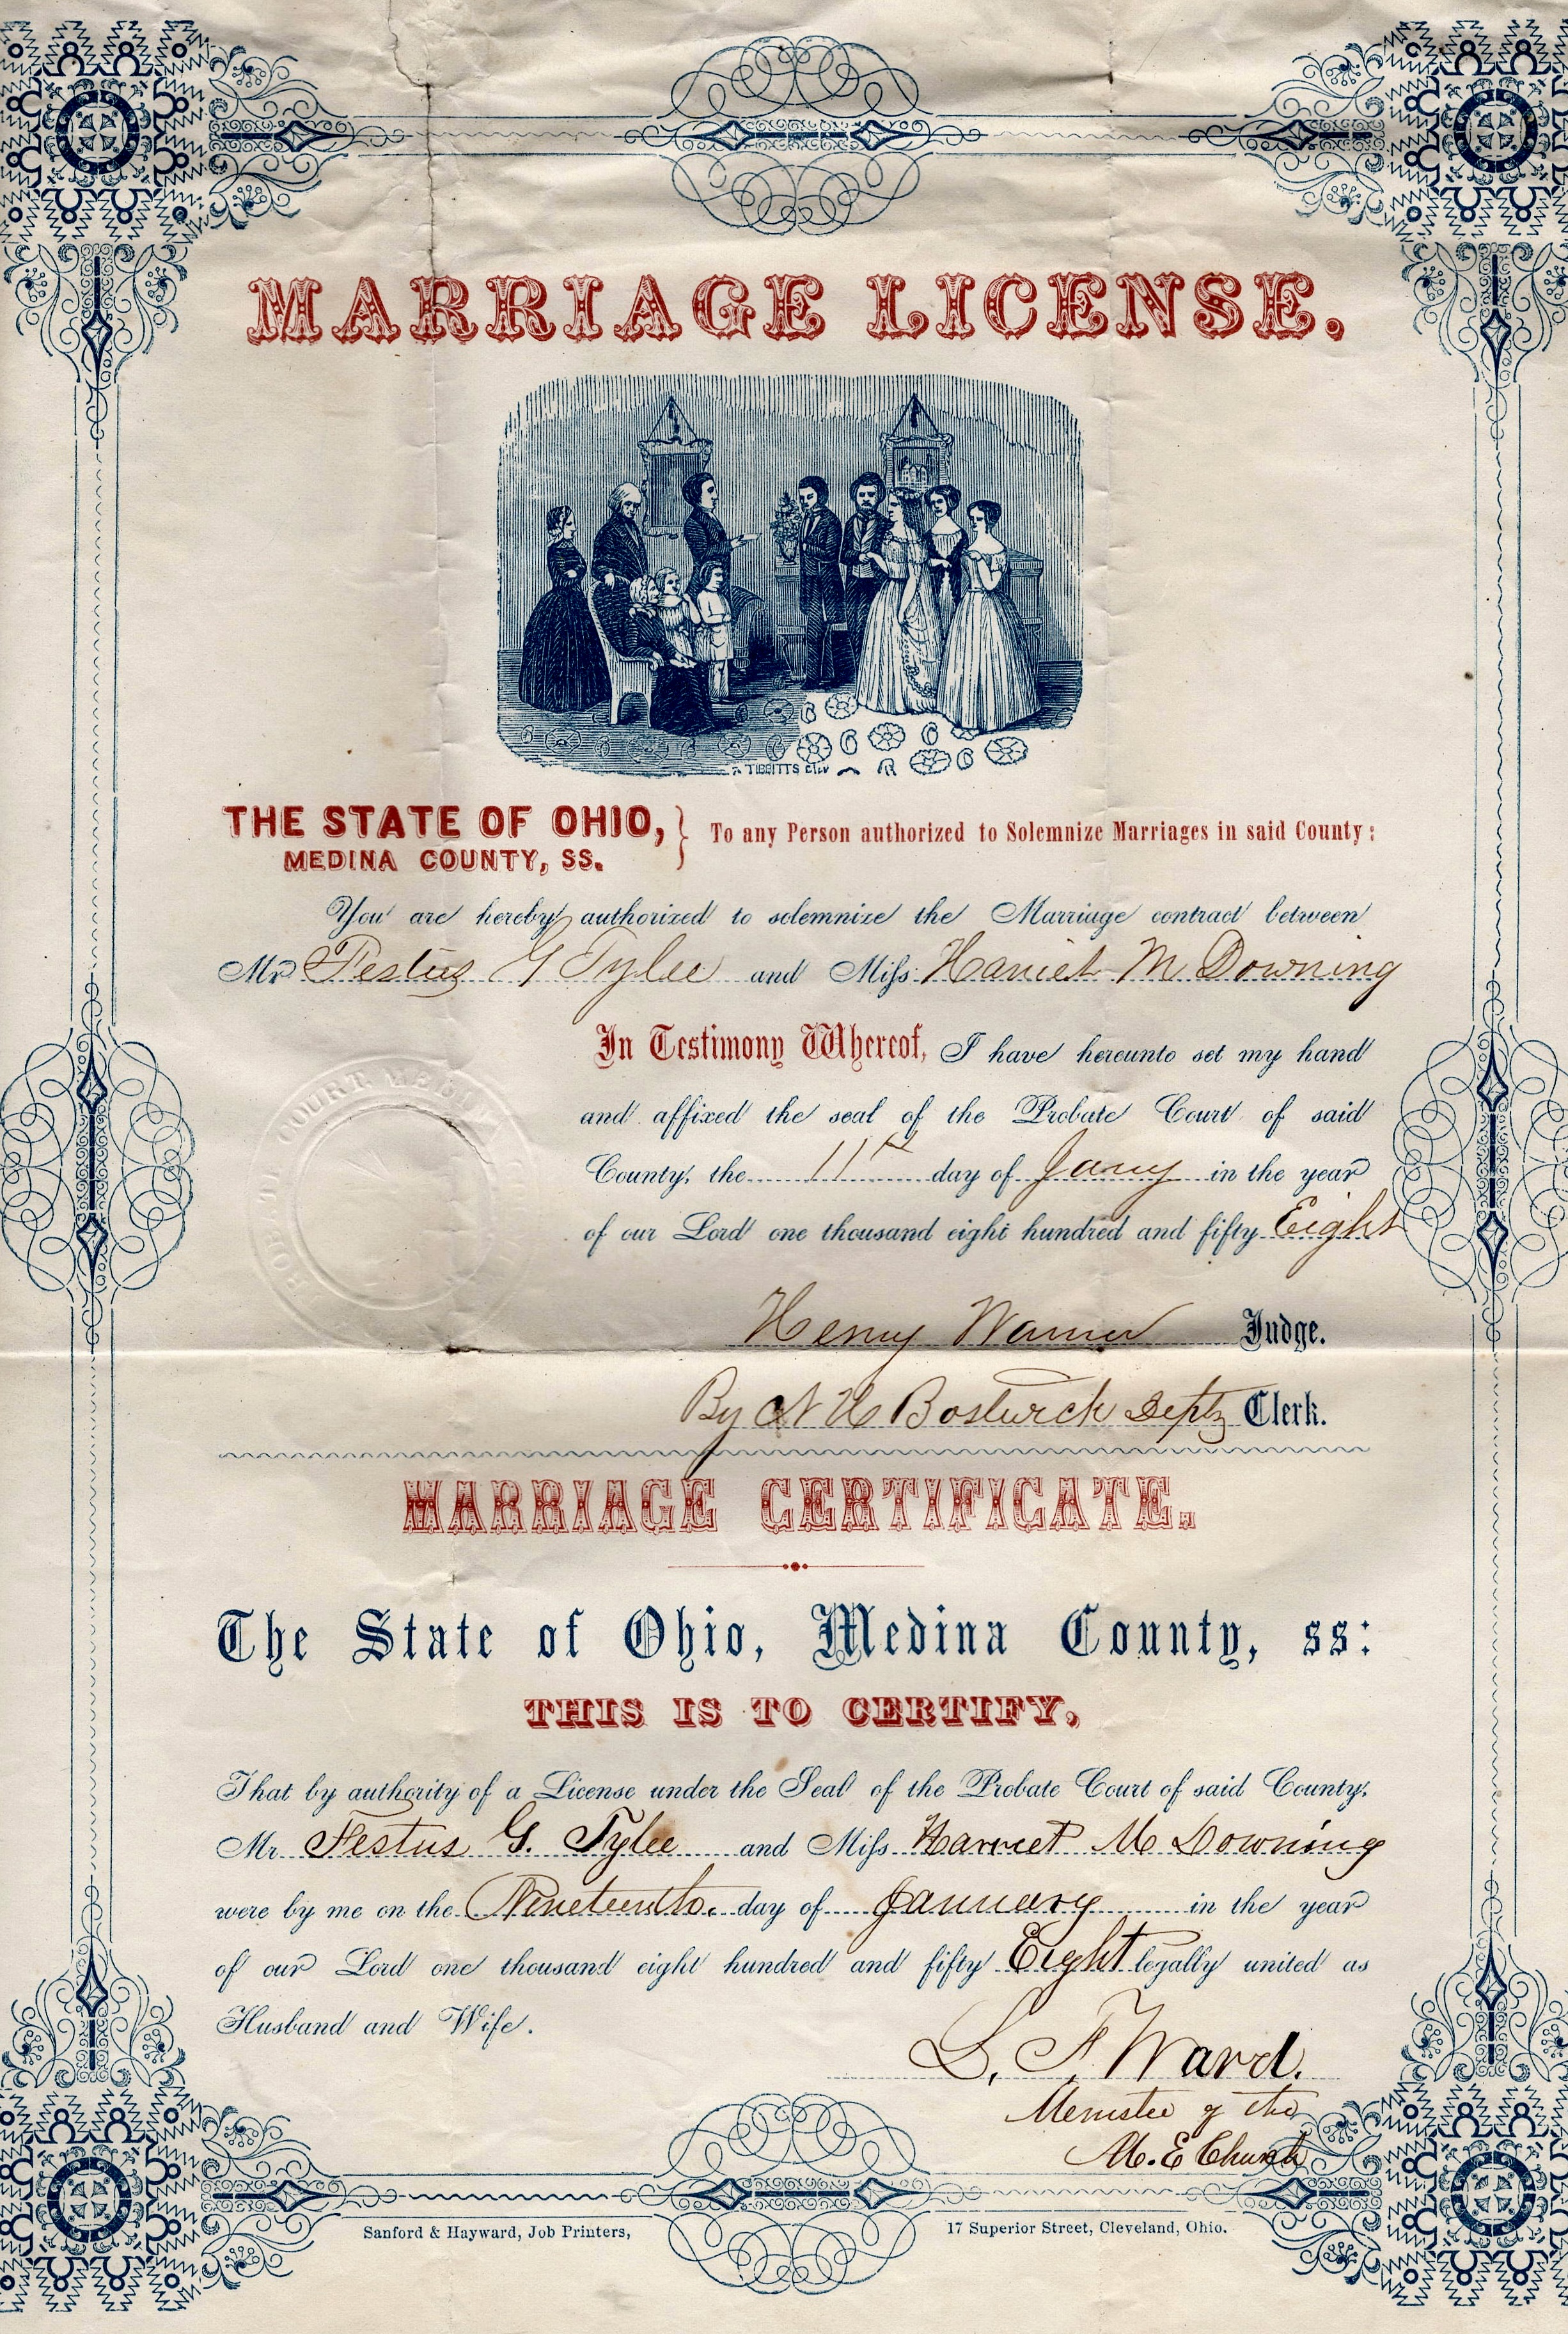 MARRIAGE LICENSE.
TIBBITTS
THE STATE OF OHIO, } To any Person authorized to Solemnize Marriages in said County:
MEDINA COUNTY, SS.
You are hereby authorized to solemnize the Marriage contract between
Mr Festus G Tylee and Miss Harriet M Downing
In Testimony Whereof, I have hereunto set my hand
and affixed the seal of the Probate Court of said
County, the 11th day of Jany in the year
of our Lord one thousand eight hundred and fifty Eight
COURT MEDINA
Henry Warner Judge.
By N H Bostwick Depty Clerk.
MARRIAGE CERTIFICATE.
The State of Ohio, Medina County, ss:
THIS IS TO CERTIFY,
That by authority of a License under the Seal of the Probate Court of said County,
Mr. Festus G. Tylee and Miss Harriet M Downing
were by me on the Nineteenth day of January in the year
of our Lord one thousand eight hundred and fifty Eight legally united as
Husband and Wife.
L. F. Ward.
Minister of the
M. E Church
Sanford & Hayward, Job Printers, 17 Superior Street, Cleveland, Ohio.